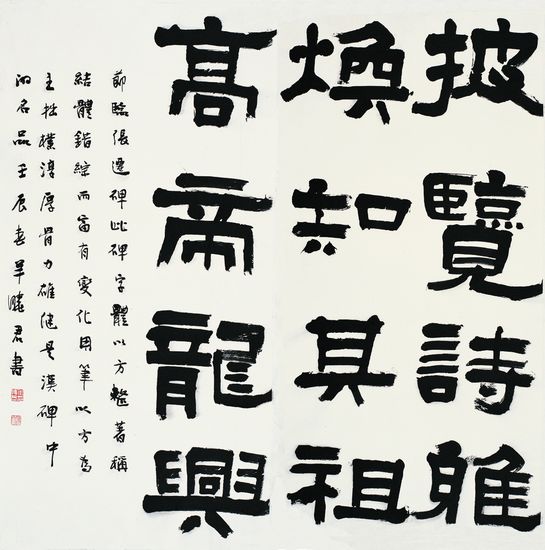 披覽詩雅
煥知其祖
高帝龍興
節臨張遷碑此碑字體以方整著稱
結體錯綜而富有變化用筆以方為
主拙樸淳厚骨力雄健是漢碑中
的名品壬辰春羊曉君書